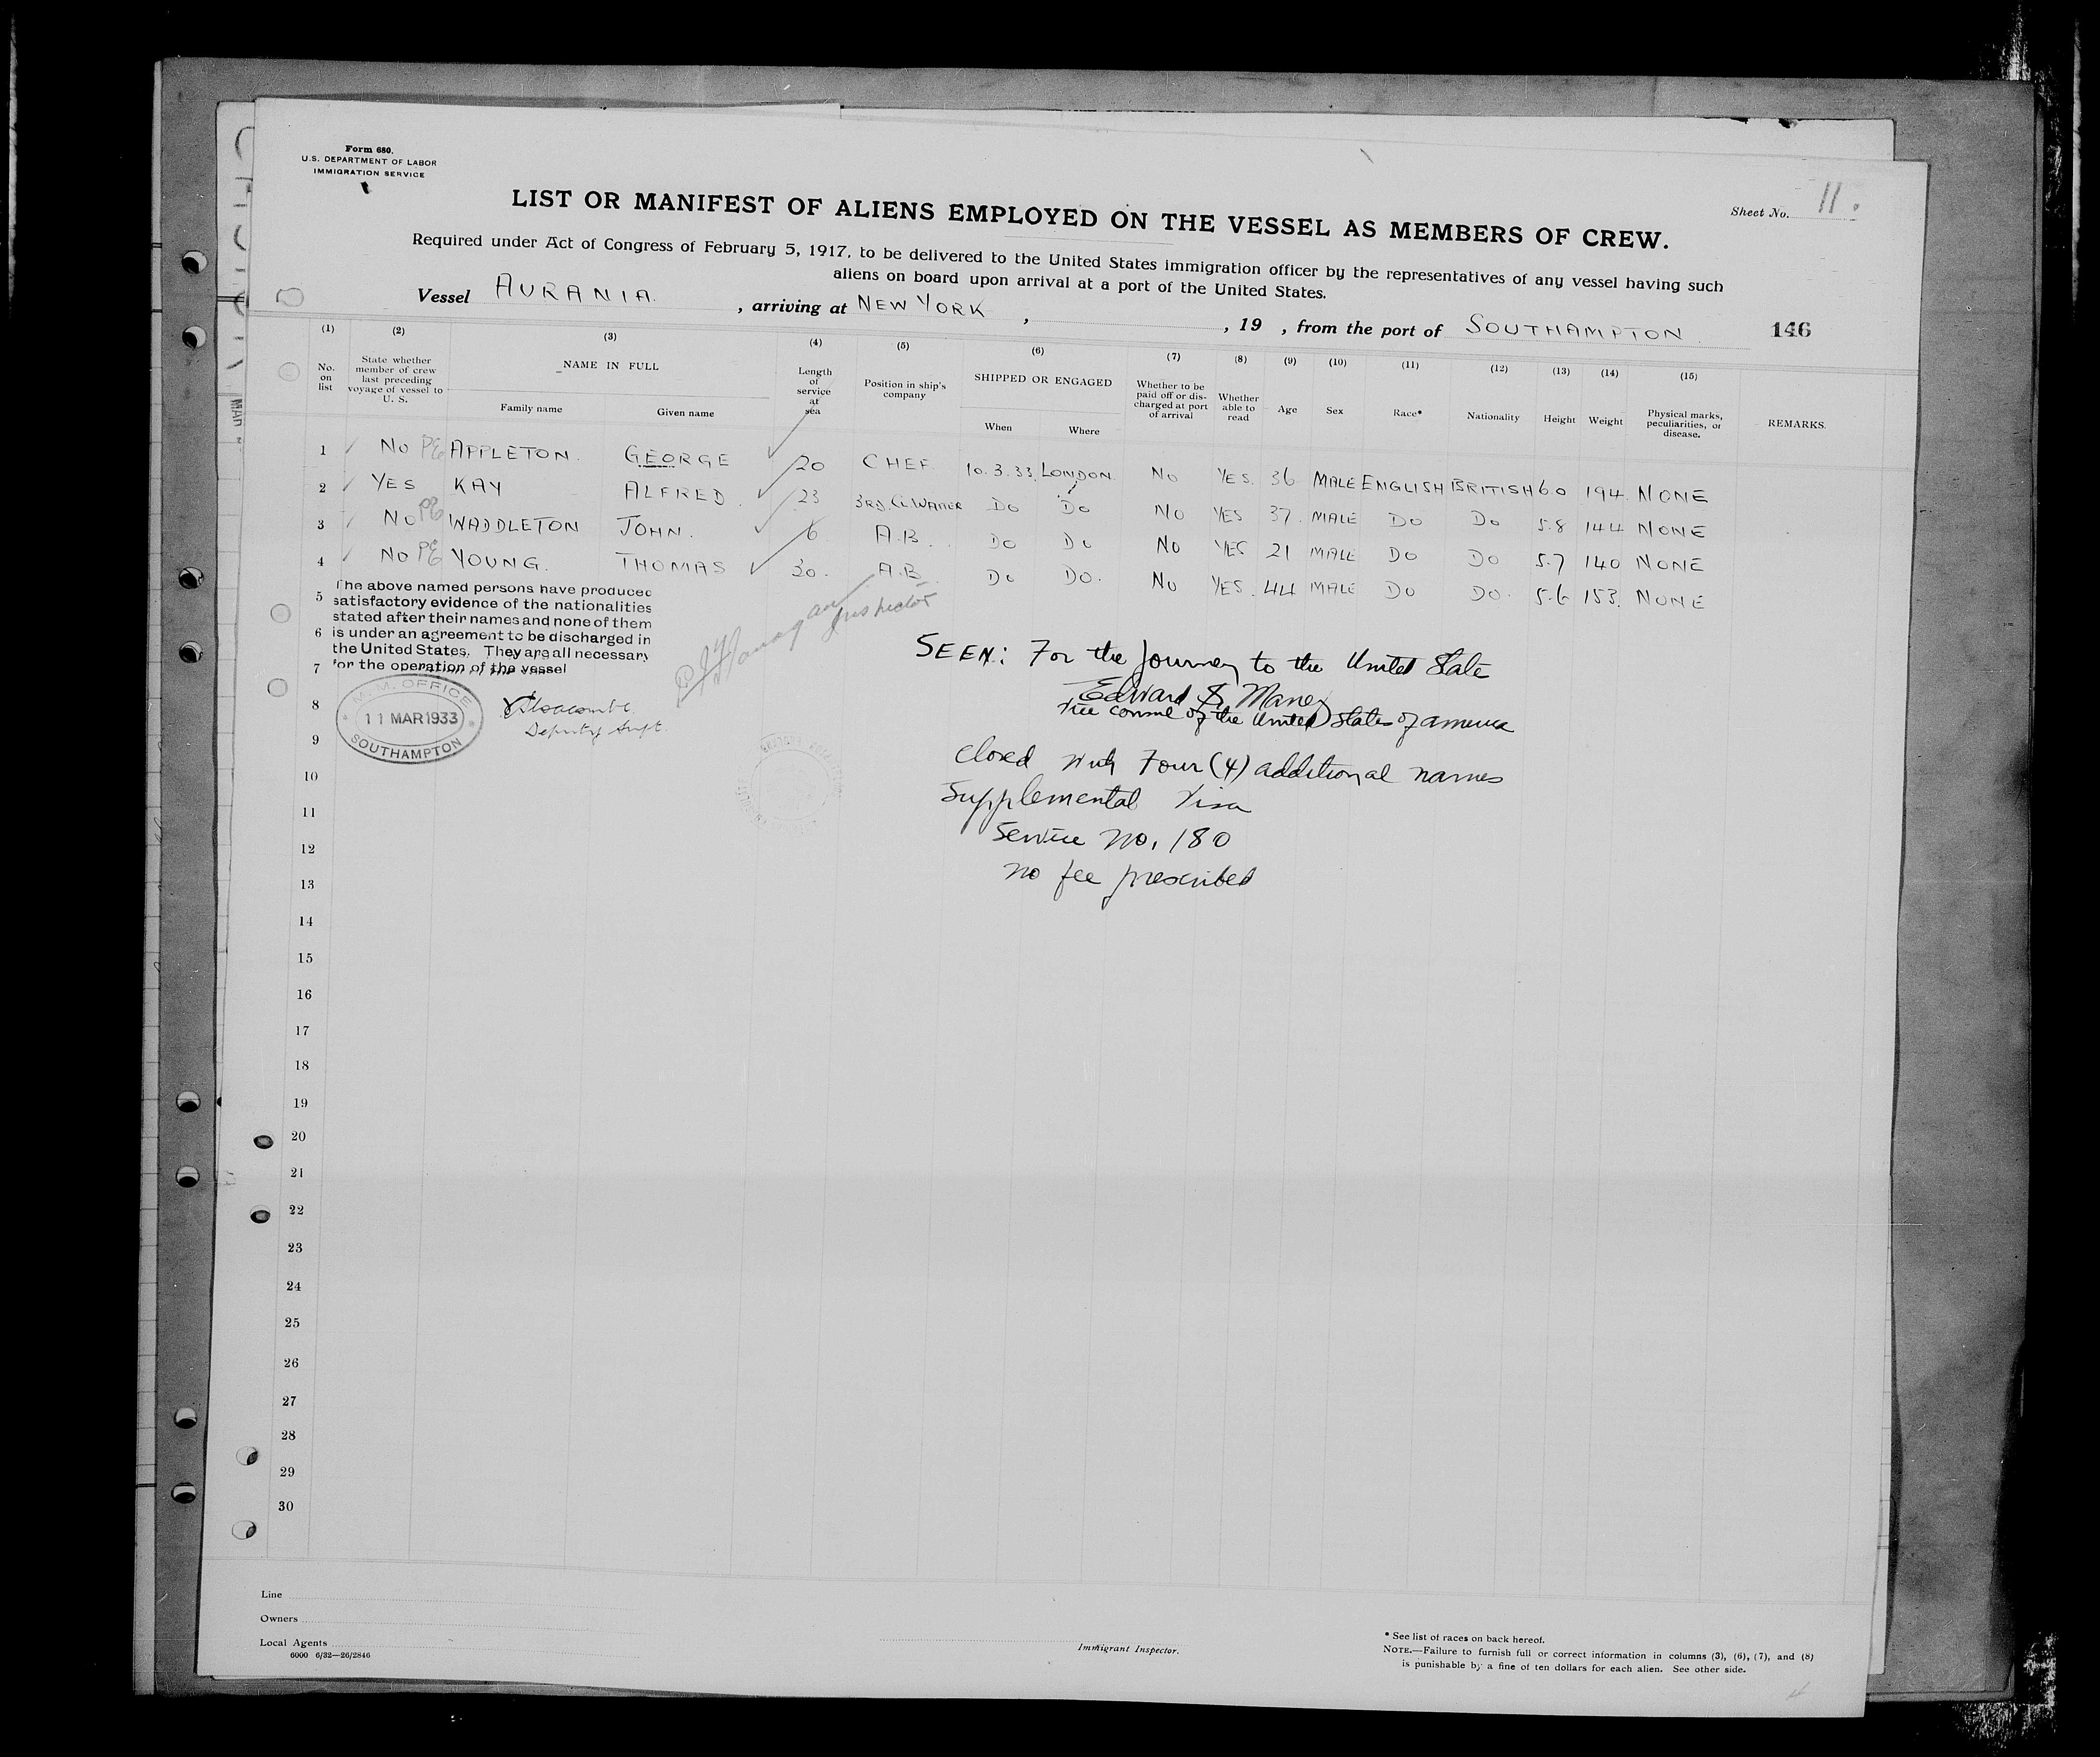 Form 680.
U.S. DEPARTMENT OF LABOR
IMMIGRATION SERVICE
Sheet No. 11.
LIST OR MANIFEST OF ALIENS EMPLOYED ON THE VESSEL AS MEMBERS OF CREW.
Required under Act of Congress of February 5, 1917, to be delivered to the United States immigration officer by the representatives of any vessel having such
aliens on board upon arrival at a port of the United States.
Vessel AURANIA. , arriving at NEW YORK , , 19 , from the port of SOUTHAMPTON. 146
(1) (2) (3) (4) (5) (6) (7) (8) (9) (10) (11) (12) (13) (14) (15)
No. on list
State whether member of crew last preceding voyage of vessel to U. S.
NAME IN FULL
Family name
Given name
Length of service at sea
Position in ship's company
SHIPPED OR ENGAGED
When
Where
Whether to be paid off or discharged at port of arrival
Whether able to read
Age
Sex
Race*
Nationality
Height
Weight
Physical marks, peculiarities, or disease.
REMARKS.
1 No PE APPLETON. GEORGE 20 CHEF 10.3.33 LONDON. No YES. 36 MALE ENGLISH BRITISH 6.0 194 NONE
2 YES KAY ALFRED. 23 3RD. CL. WAITER DO DO No YES 37. MALE DO DO 5.8 144 NONE
3 No PE WADDLETON JOHN. 6 A.B. DO DO No YES 21 MALE DO DO 5.7 140 NONE
4 No PE YOUNG. THOMAS 30. A.B. DO DO. No YES. 44 MALE DO DO. 5.6 153. NONE
The above named persons have produced
5 satisfactory evidence of the nationalities
stated after their names and none of them
6 is under an agreement to be discharged in
the United States. They are all necessary
7 for the operation of the vessel
Inspector
M.M. OFFICE
11 MAR 1933
SOUTHAMPTON
Deputy Supt.
SEEN: For the Journey to the United State
Edward S. Maney
Vice consul of the United States of america
closed with Four (4) additional names
Supplemental Visa
Service no. 180
no fee prescribed
8
9
10
11
12
13
14
15
16
17
18
19
20
21
22
23
24
25
26
27
28
29
30
Line
Owners
Local Agents
6000 6/32—26/2846
Immigrant Inspector.
* See list of races on back hereof.
NOTE.—Failure to furnish full or correct information in columns (3), (6), (7), and (8)
is punishable by a fine of ten dollars for each alien. See other side.